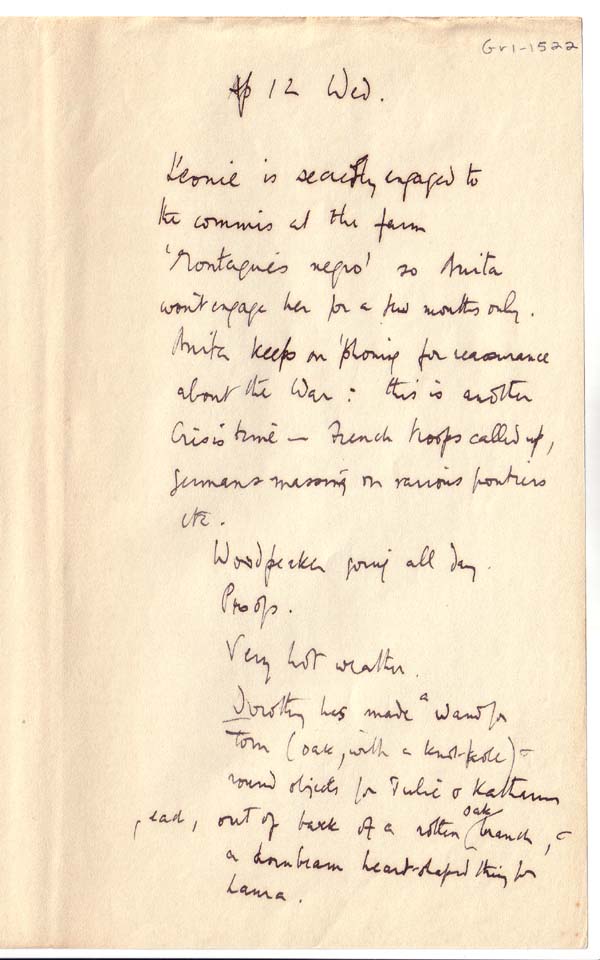 Gr1-1522
Ap 12 Wed.
Léonie is secretly engaged to
the commis at the farm
'Montagnés negro' so Anita
won't engage her for a few months only.
Anita keeps on 'phoning for reassurance
about the War: this is another
Crisis time – French troops called up,
Germans massing on various frontiers
etc.
Woodpecker going all day.
Proofs.
Very hot weather.
Dorothy has made a wand for
Tom (oak, with a knot-hole) &
round objects for Julie & Katharine
, each, out of bark of a rotten oak branch, &
a hornbeam heart-shaped thing for
Laura.